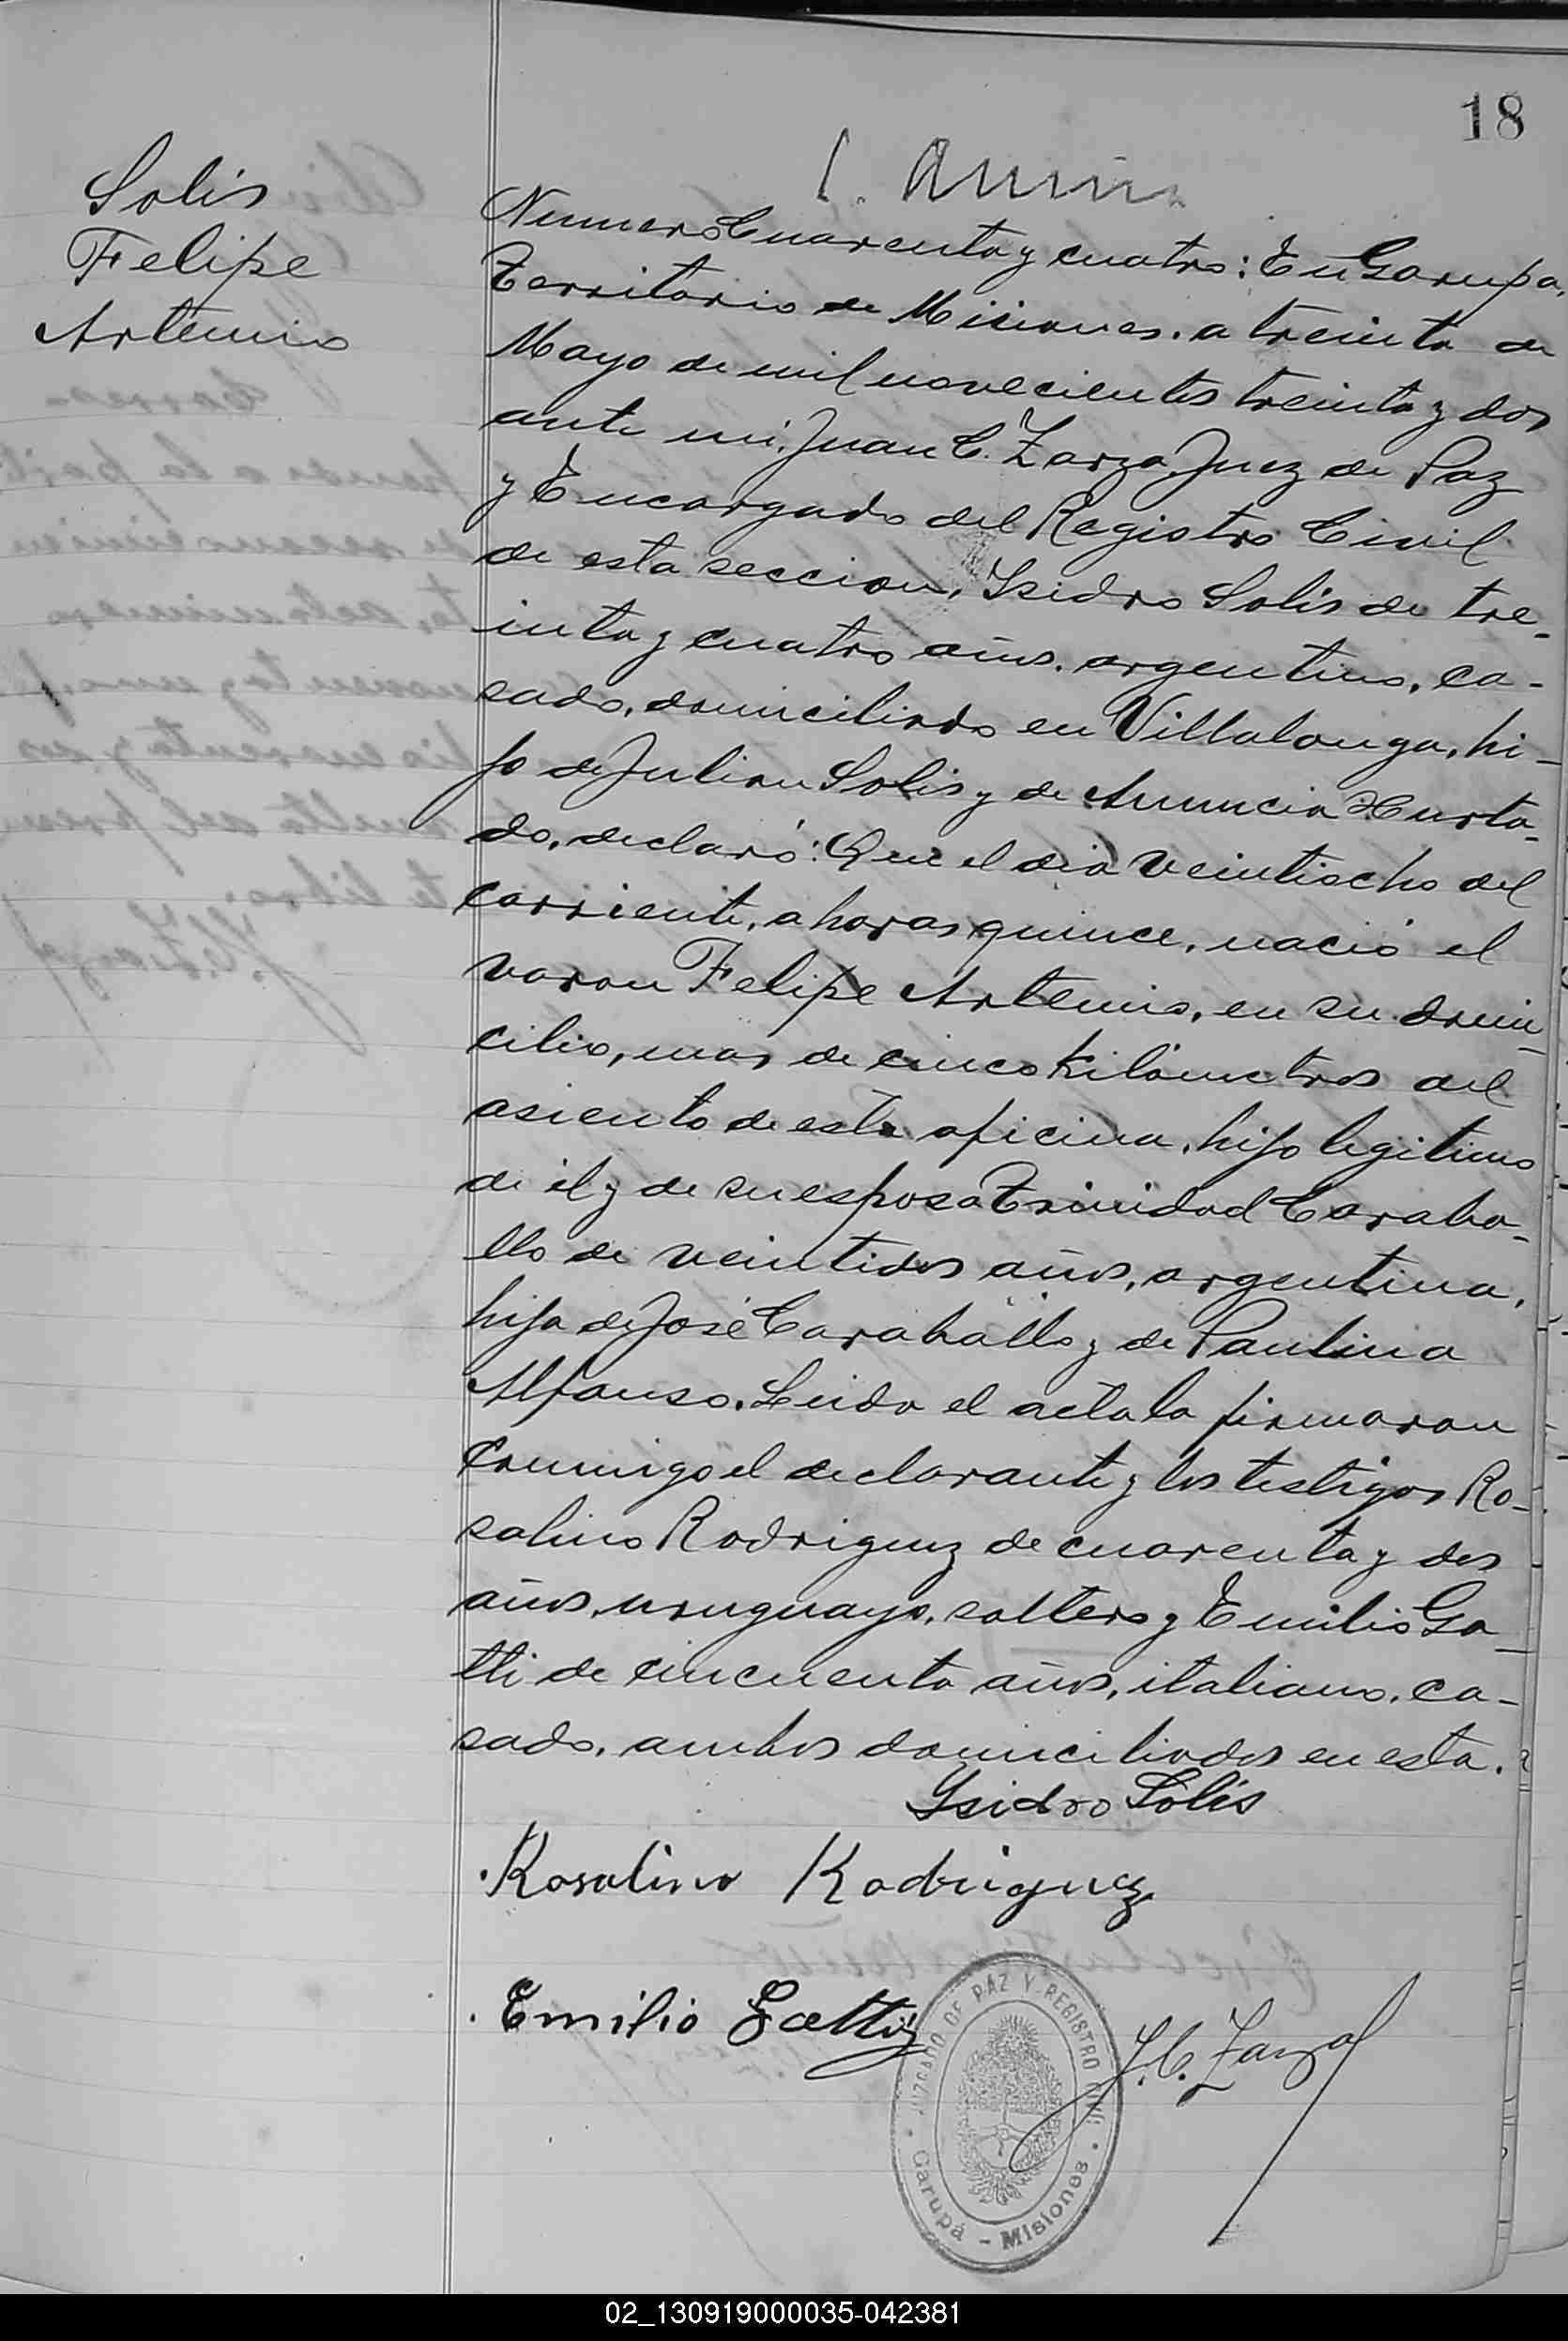 18
Solis
Felipe
Artemio
Numero Cuarenta y cuatro: En Garupa,
Territorio de Misiones, a treinta de
Mayo de mil novecientos treinta y dos
ante mi, Juan C. Zarza Juez de Paz
y Encargado del Registro Civil
de esta seccion, Isidro Solis de tre-
inta y cuatro años, argentino, ca-
sado, domiciliado en Villalonga, hi-
jo de Julian Solis y de Anuncia Hurta-
do, declaró: Que el dia veintiocho del
corriente, a horas quince, nació el
varon Felipe Artemio, en su domi-
cilio, mas de cinco kilómetros del
asiento de esta oficina, hijo legitimo
de él y de su esposa Trinidad Caraba-
llo de veintidos años, argentina,
hija de José Caraballo y de Paulina
Alfonso. Leida el acta la firmaron
conmigo el declarante y los testigos Ro-
salino Rodriguez de cuarenta y dos
años, uruguayo, soltero y Emilio Ga-
tti de cincuenta años, italiano, ca-
sado, ambos domiciliados en esta.
Isidro Solis
Rosalino Rodriguez
Emilio Gatti
J. C. Zarza
JUZGADO DE PAZ Y REGISTRO CIVIL
Garupá - Misiones
02_130919000035-042381